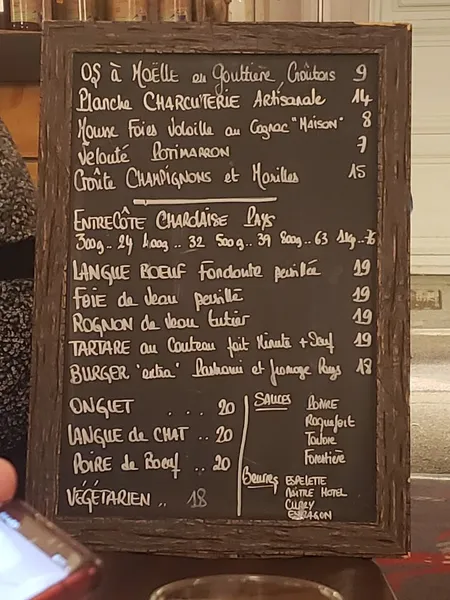 OS à Moëlle en Gouttière Croûtons 9
Planche CHARCUTERIE Artisanale 14
Mousse Foies Volaille au Cognac "MAISON" 8
Velouté POTIMARRON 7
Croûte CHAMPIGNONS et Morilles 15
ENTRECÔTE CHAROLAISE PAYS
300g.. 24 400g.. 32 500g.. 39 800g.. 63 1kg..76
LANGUE BOEUF Fondante persillée 19
Foie de Veau persillé 19
ROGNON de Veau Entier 19
TARTARE au Couteau fait Minute + Oeuf 19
BURGER "extra" Pastrami et fromage Pays 18
ONGLET . . . . 20
LANGUE de CHAT .. 20
POIRE de Boeuf .. 20
VÉGÉTARIEN .. 18
SAUCES POIVRE
Roquefort
Forestière
Beurres ESPELETTE
MAÎTRE HOTEL
CURRY
ESTRAGON